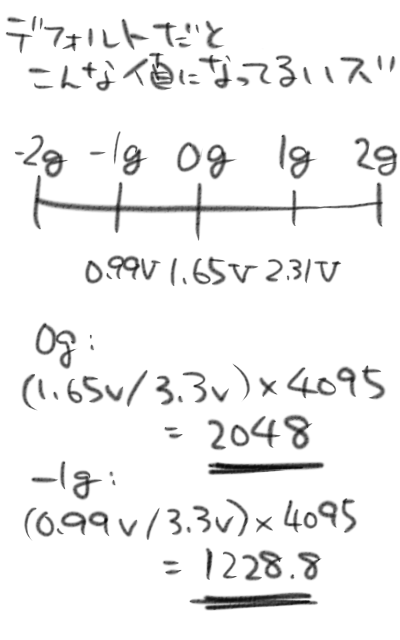 デフォルトだと
こんな値になってるハズ
-2g -1g 0g 1g 2g
0.99V 1.65V 2.31V
0g:
(1.65v/3.3v)×4095
= 2048
-1g:
(0.99v/3.3v)×4095
= 1228.8